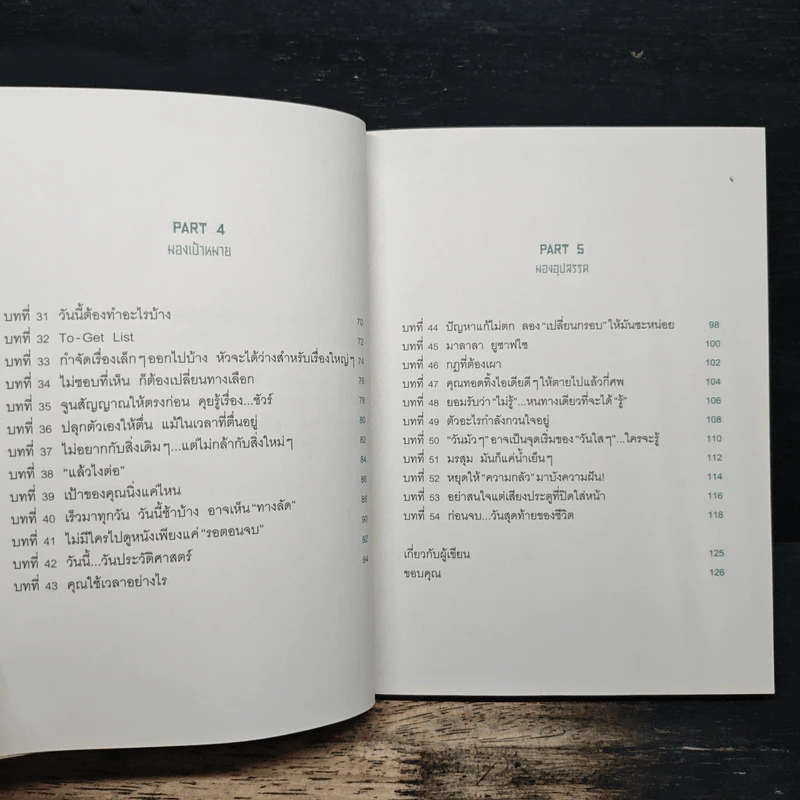 PART 4
มองเป้าหมาย
บทที่ 31 วันนี้ต้องทำอะไรบ้าง 70
บทที่ 32 To-Get List 72
บทที่ 33 กำจัดเรื่องเล็กๆ ออกไปบ้าง หัวจะได้ว่างสำหรับเรื่องใหญ่ๆ 74
บทที่ 34 ไม่ชอบที่เห็น ก็ต้องเปลี่ยนทางเลือก 76
บทที่ 35 จูนสัญญาณให้ตรงก่อน คุยรู้เรื่อง...ชัวร์ 78
บทที่ 36 ปลุกตัวเองให้ตื่น แม้ในเวลาที่ตื่นอยู่ 80
บทที่ 37 ไม่อยากกับสิ่งเดิมๆ...แต่ไม่กล้ากับสิ่งใหม่ๆ 82
บทที่ 38 "แล้วไงต่อ" 84
บทที่ 39 เป้าของคุณนิ่งแค่ไหน 86
บทที่ 40 เร็วมาทุกวัน วันนี้ช้าบ้าง อาจเห็น "ทางลัด" 88
บทที่ 41 ไม่มีใครไปดูหนังเพียงแค่ "รอตอนจบ" 90
บทที่ 42 วันนี้...วันประวัติศาสตร์ 92
บทที่ 43 คุณใช้เวลาอย่างไร 94
PART 5
มองอุปสรรค
บทที่ 44 ปัญหาแก้ไม่ตก ลอง "เปลี่ยนกรอบ" ให้มันซะหน่อย 98
บทที่ 45 มาลาลา ยูซาฟไซ 100
บทที่ 46 กฎที่ต้องเผา 102
บทที่ 47 คุณทอดทิ้งไอเดียดีๆ ให้ตายไปแล้วกี่ศพ 104
บทที่ 48 ยอมรับว่า "ไม่รู้"...หนทางเดียวที่จะได้ "รู้" 106
บทที่ 49 ตัวอะไรกำลังกวนใจอยู่ 108
บทที่ 50 "วันมัวๆ" อาจเป็นจุดเริ่มของ "วันใสๆ"...ใครจะรู้ 110
บทที่ 51 มรสุม มันก็แค่น้ำเย็นๆ 112
บทที่ 52 หยุดให้ "ความกลัว" มาบังความฝัน! 114
บทที่ 53 อย่าสนใจแต่เสียงประตูที่ปิดใส่หน้า 116
บทที่ 54 ก่อนจบ...วันสุดท้ายของชีวิต 118
เกี่ยวกับผู้เขียน 125
ขอบคุณ 126